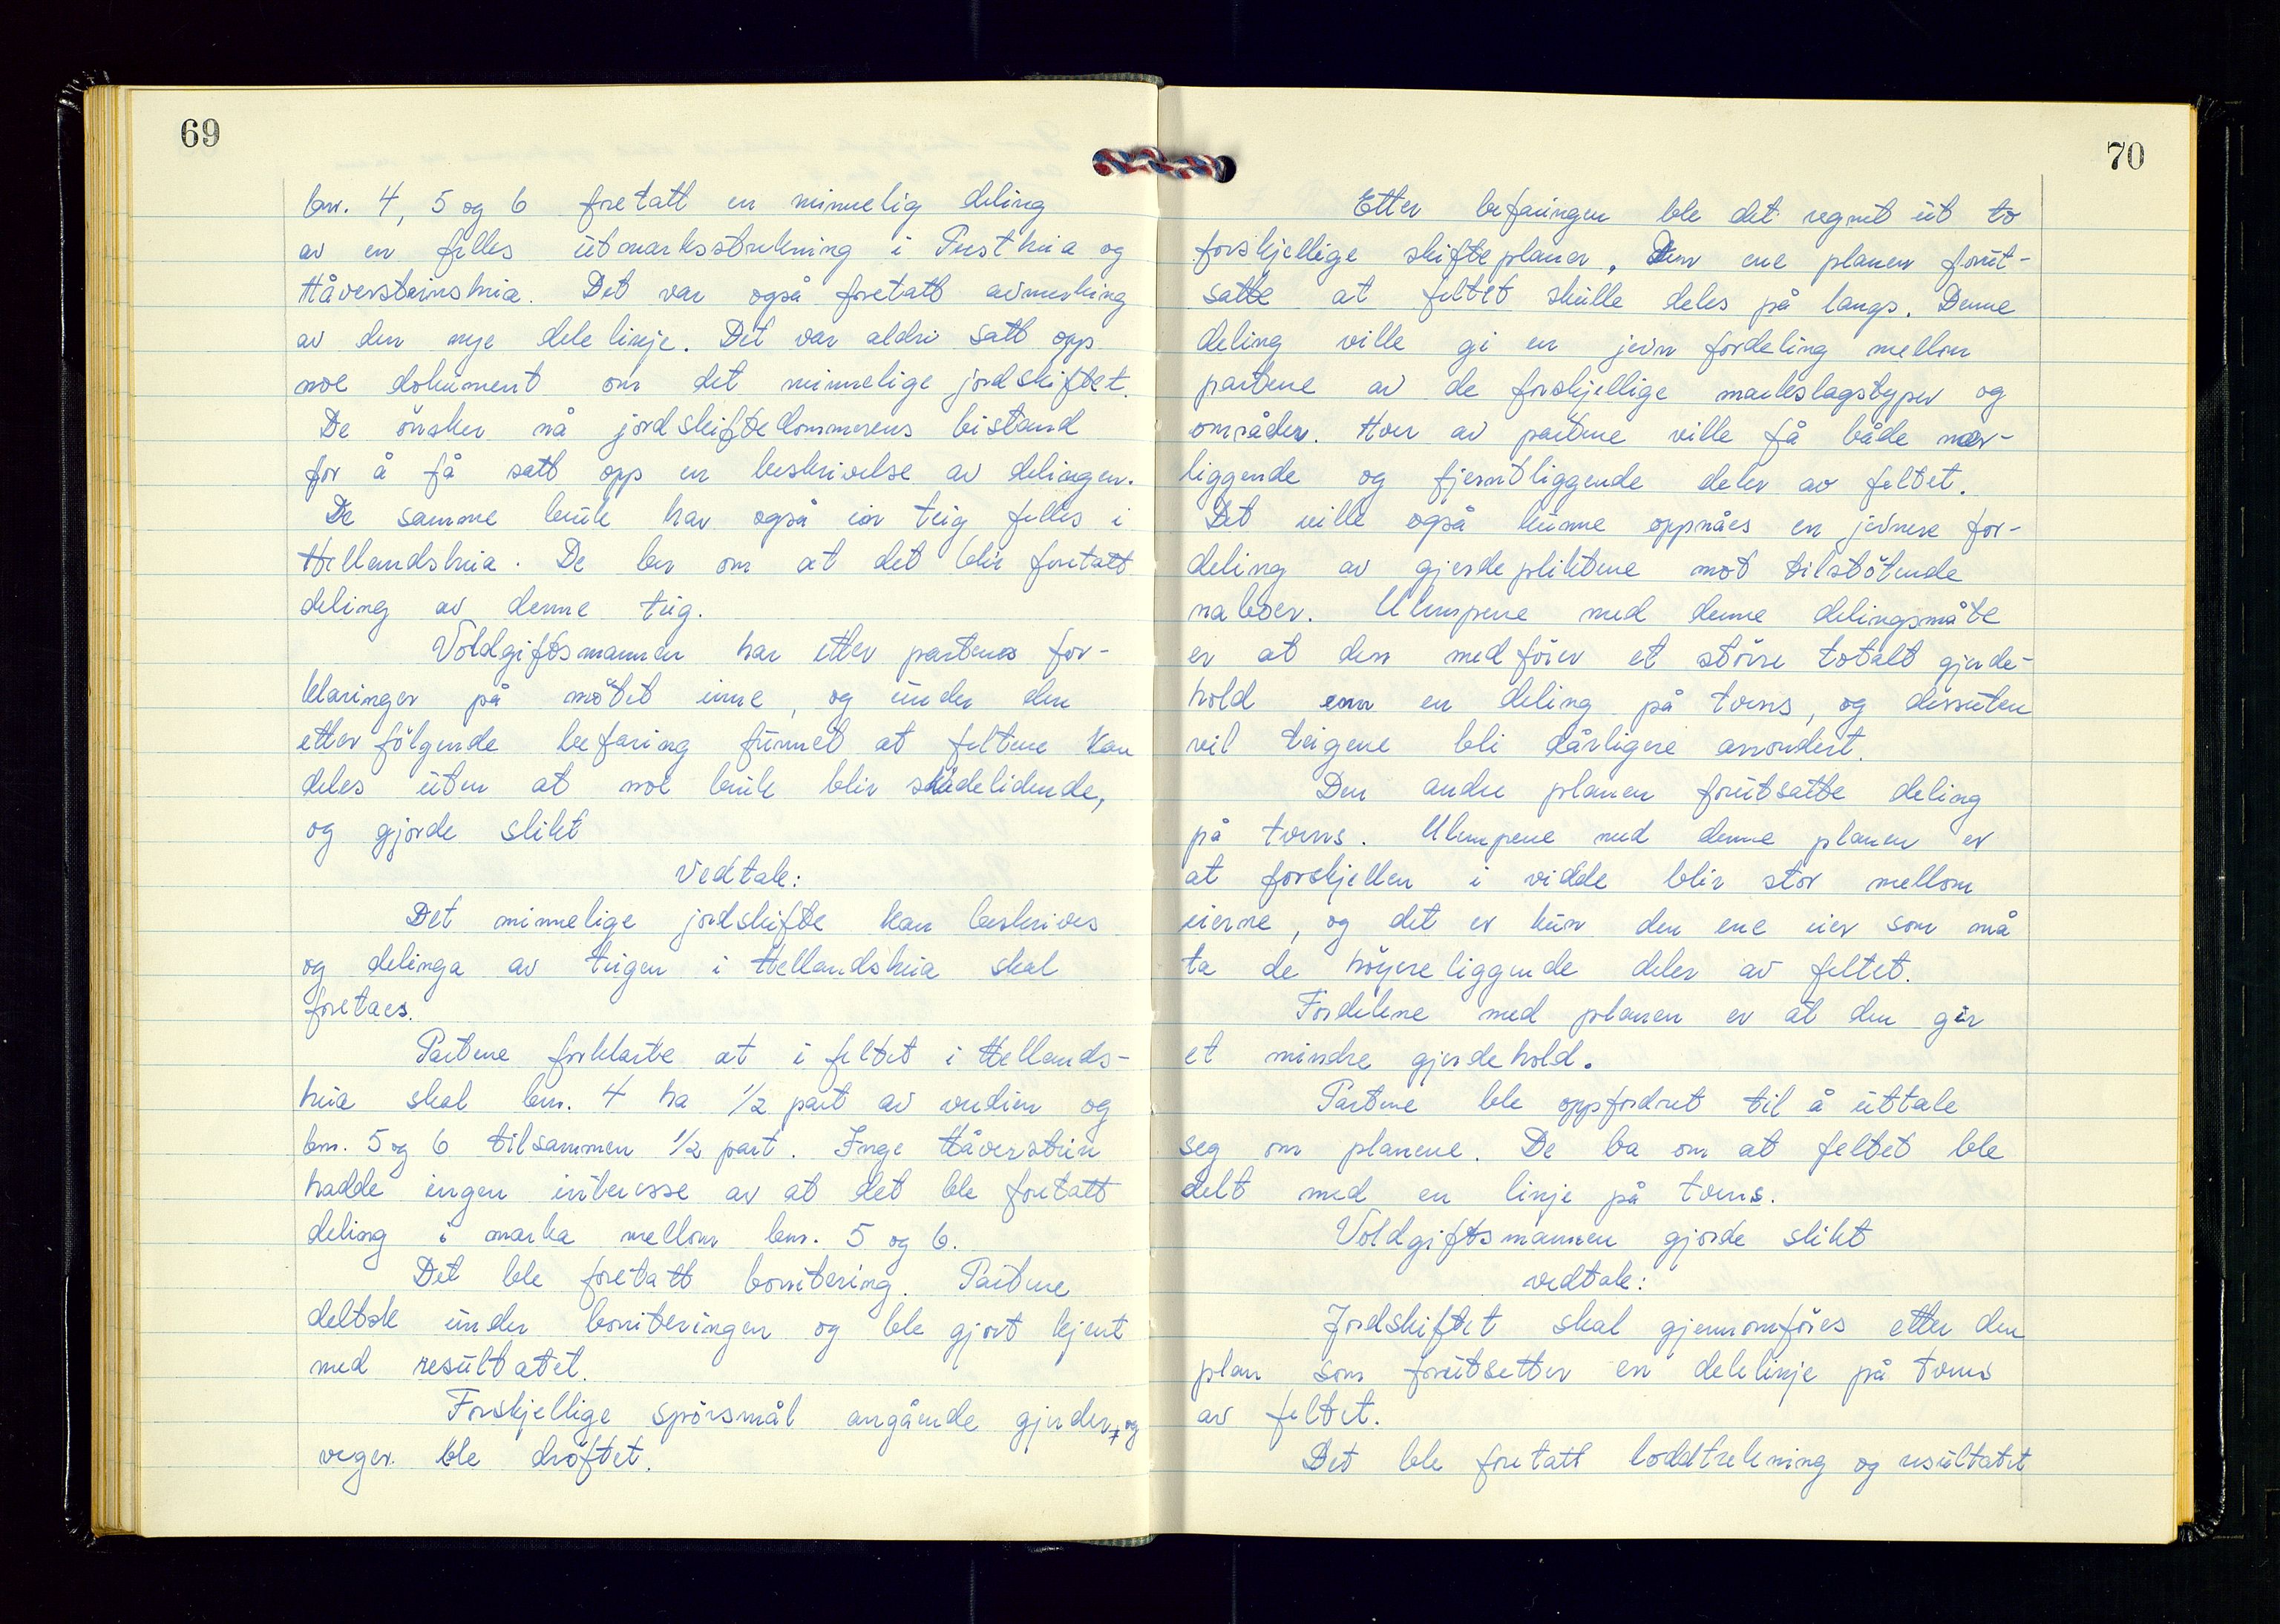 69
bnr. 4, 5 og 6 foretatt en minnelig deling
av en felles utmarksstrekning i Pusthia og
Håversteinshia. Det var også foretatt avmerking
av den nye dele linje. Det var aldri satt opp
noe dokument om det minnelige jordskiftet.
De önsker nå jordskiftedommerens bistand
for å få satt opp en beskrivelse av delingen.
De samme bruk har også ein teig felles i
Hellandshia. De ber om at det blir foretatt
deling av denne teig.
Voldgiftsmannen har etter partenes for-
klaringer på mötet inne, og under den
etter fölgende befaring funnet at feltene kan
deles uten at noe bruk blir skadelidende,
og gjorde slikt
Vedtak:
Det minnelige jordskifte kan beskrives
og delinga av teigen i Hellandshia skal
foretaes.
Partene forklarte at i feltet i Hellands-
hia skal bnr. 4 ha 1/2 part av verdien og
bnr. 5 og 6 tilsammen 1/2 part. Inge Håverstein
hadde ingen interesse av at det ble foretatt
deling i marka mellom bnr. 5 og 6.
Det ble foretatt bonitering. Partene
deltok under boniteringen og ble gjort kjent
med resultatet.
Forskjellige spörsmål angående gjerder, og
veger ble dröftet.
70
Etter befaringen ble det regnet ut to
forskjellige skifteplaner. Den ene planen forut-
satte at feltet skulle deles på langs. Denne
deling ville gi en jevn fordeling mellom
partene av de forskjellige markslagstyper og
områder. Hver av partene ville få både nær-
liggende og fjerntliggende deler av feltet.
Det ville også kunne oppnåes en jevnere for-
deling av gjerdepliktene mot tilstötende
naboer. Ulempene med denne delingsmåte
er at den medförer et större totalt gjerde-
hold enn en deling på tvers, og dessuten
vil teigene bli dårligere arrondert.
Den andre planen forutsatte deling
på tvers. Ulempene med denne planen er
at forskjellen i vidde blir stor mellom
eierne, og det er kun den ene eier som må
ta de höyere liggende deler av feltet.
Fordelene med planen er at den gir
et mindre gjerdehold.
Partene ble oppfordret til å uttale
seg om planene. De ba om at feltet ble
delt med en linje på tvers.
Voldgiftsmannen gjorde slikt
vedtak:
Jordskiftet skal gjennomföres etter den
plan som forutsetter en delelinje på tvers
av feltet.
Det ble foretatt loddtrekning og resultatet